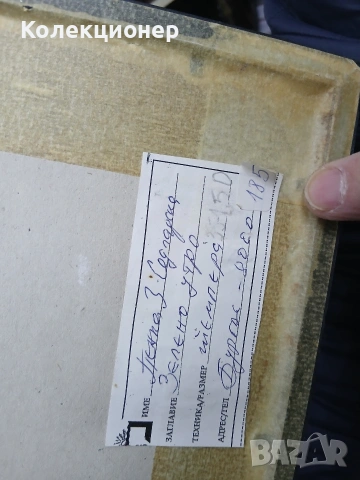 Колекционер
ИМЕ Пенка З.
ЗАГЛАВИЕ Зелено утро
ТЕХНИКА/РАЗМЕР темпера
АДРЕС/ТЕЛ Бургас - 185
BAZAR